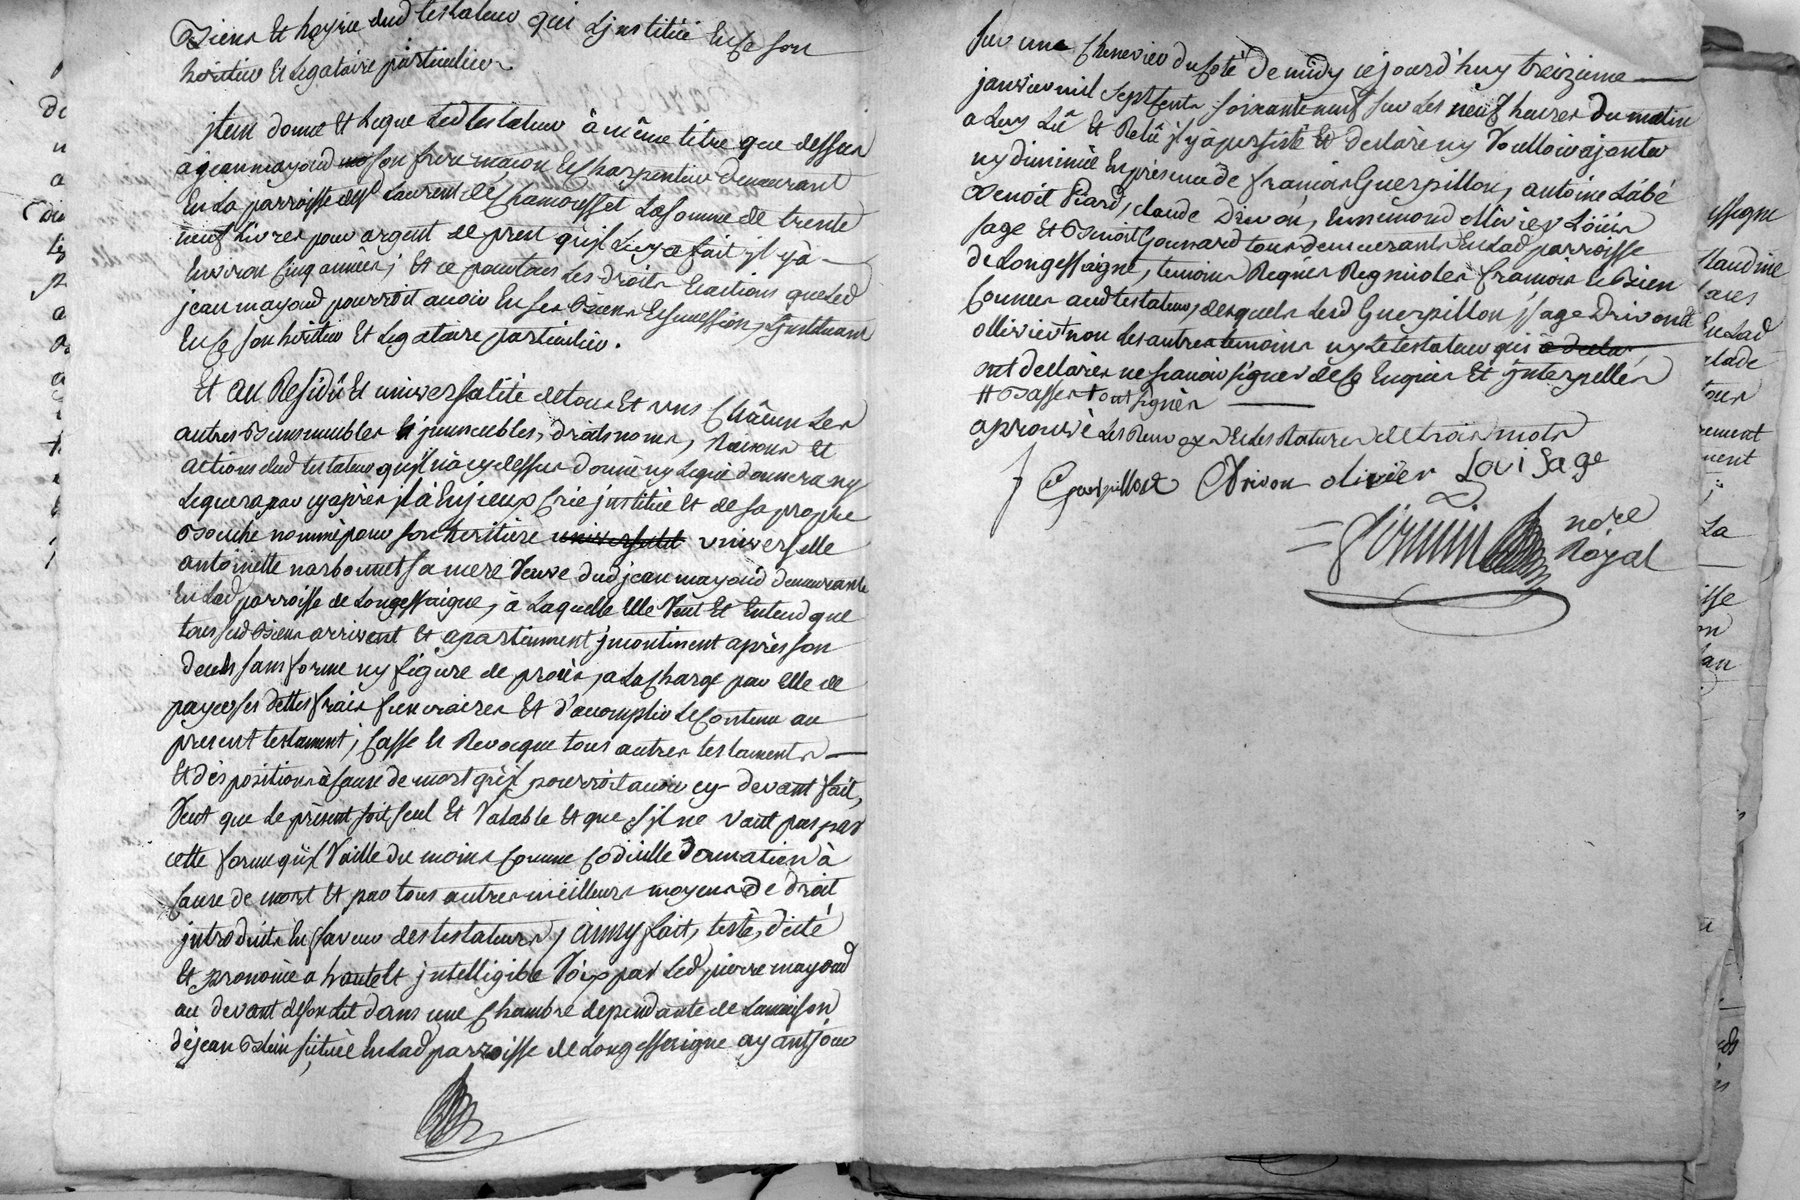 Biens et hoyrie dud testateur qui l'institüe en ce son
heritier et legataire particulier.
jtem donne et legue led testateur à même titre que dessus
à jean mayoud son frere maçon et charpentier demeurant
en la parroisse de st Laurent de Chamousset la somme de trente
neuf livres pour argent de pret qu'jl luy a fait jl y a
environ cinq années; et ce pour tous les droits et actions que led
jean mayoud pourroit avoir en ses Biens et succession, l'jnstituant
en ce son heritier et legataire particulier.
Et au Residû et universalité de tous et uns châcun ses
autres Biens meubles et jmmeubles, droits noms, Raisons et
actions dud testateur qu'jl n'a cy dessus donné ny legué donnera ny
leguera par cy après jl à fait créé jnstitüé et de sa propre
Bouche nommé pour son heritiere universelle
antoinette narbonnet sa mere Veuve dud jean mayoud demeurante
en lad parroisse de Longessaigne, à laquelle elle Veut et entend que
tous sesd Biens arrivent et apartiennent jncontinent après son
decès sans forme ny figure de procès, à la charge par elle de
payer ses dettes frais funeraires et d'acomplir le contenu au
present testament, casse et Revocque tous autres testaments
et dispositions à cause de mort qu'jl pourroit avoir cy-devant fait,
Veut que le présent soit seul et Valable et que s'jl ne vaut pas par
cette forme qu'jl Vaille du moins comme codicille donnation à
cause de mort et par tous autres meilleurs moyens de droit
jntroduits en faveur des testateurs, ainsy fait, testé, dicté
et prononcé a haute et jntelligible Voix par led pierre mayoud
au devant de son lit dans une chambre dependante de la maison
de jean Blein située en lad parroisse de Longessaigne ayant jour
sur une cheneviere du coté de midy cejourd'huy treizieme
janvier mil sept cents soixante neuf sur les neuf heures du matin
a luy Lû et Relû jl y à persisté et declaré ny Vouloir ajouter
ny diminüer en présence de françois Guerpillon, antoine Labé
Benoit Piard, claude Drivon, ennemond ollivier, Loüis
sage et Benoit Gounard tous demeurants en lad parroisse
de Longessaigne, temoins Requis Regnicoles françois et Bien
connus aud testateur, desquels lesd Guerpillon, sage Drivon et
ollivier non les autres temoins ny le testateur qui
ont declarés ne sçavoir signer de ce enquis et jnterpellés
ont signés
aprouvé les Renvoy et les Ratures de trois mots
Guerpillon Drivon olivier Loui Sage
nore
Royal